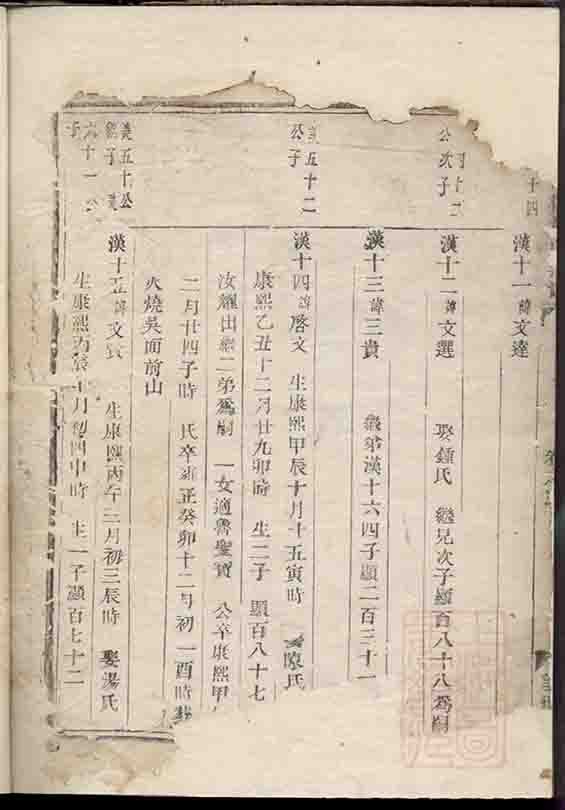 十四
漢十一諱文達
公次子
漢十二諱文選 娶鍾氏 繼兄次子顯百八十八爲嗣
漢十三諱三貴 繼弟漢十六四子顯二百三十一
五十二
公子
漢十四諱啓文 生康熙甲辰十月十五寅時 娶 氏
康熙乙丑十二月廿九卯時 生二子 顯百八十七
汝耀出繼二弟爲嗣 一女適魯聖賓 公卒康熙甲
二月廿四子時 氏卒雍正癸卯十二月初一酉時
火燒吳面前山
五十公
子
六十一公
子
漢十五諱文 生康熙丙午二月初三辰時 娶湯氏
生康熙丙辰十月初四申時 生一子顯百七十二